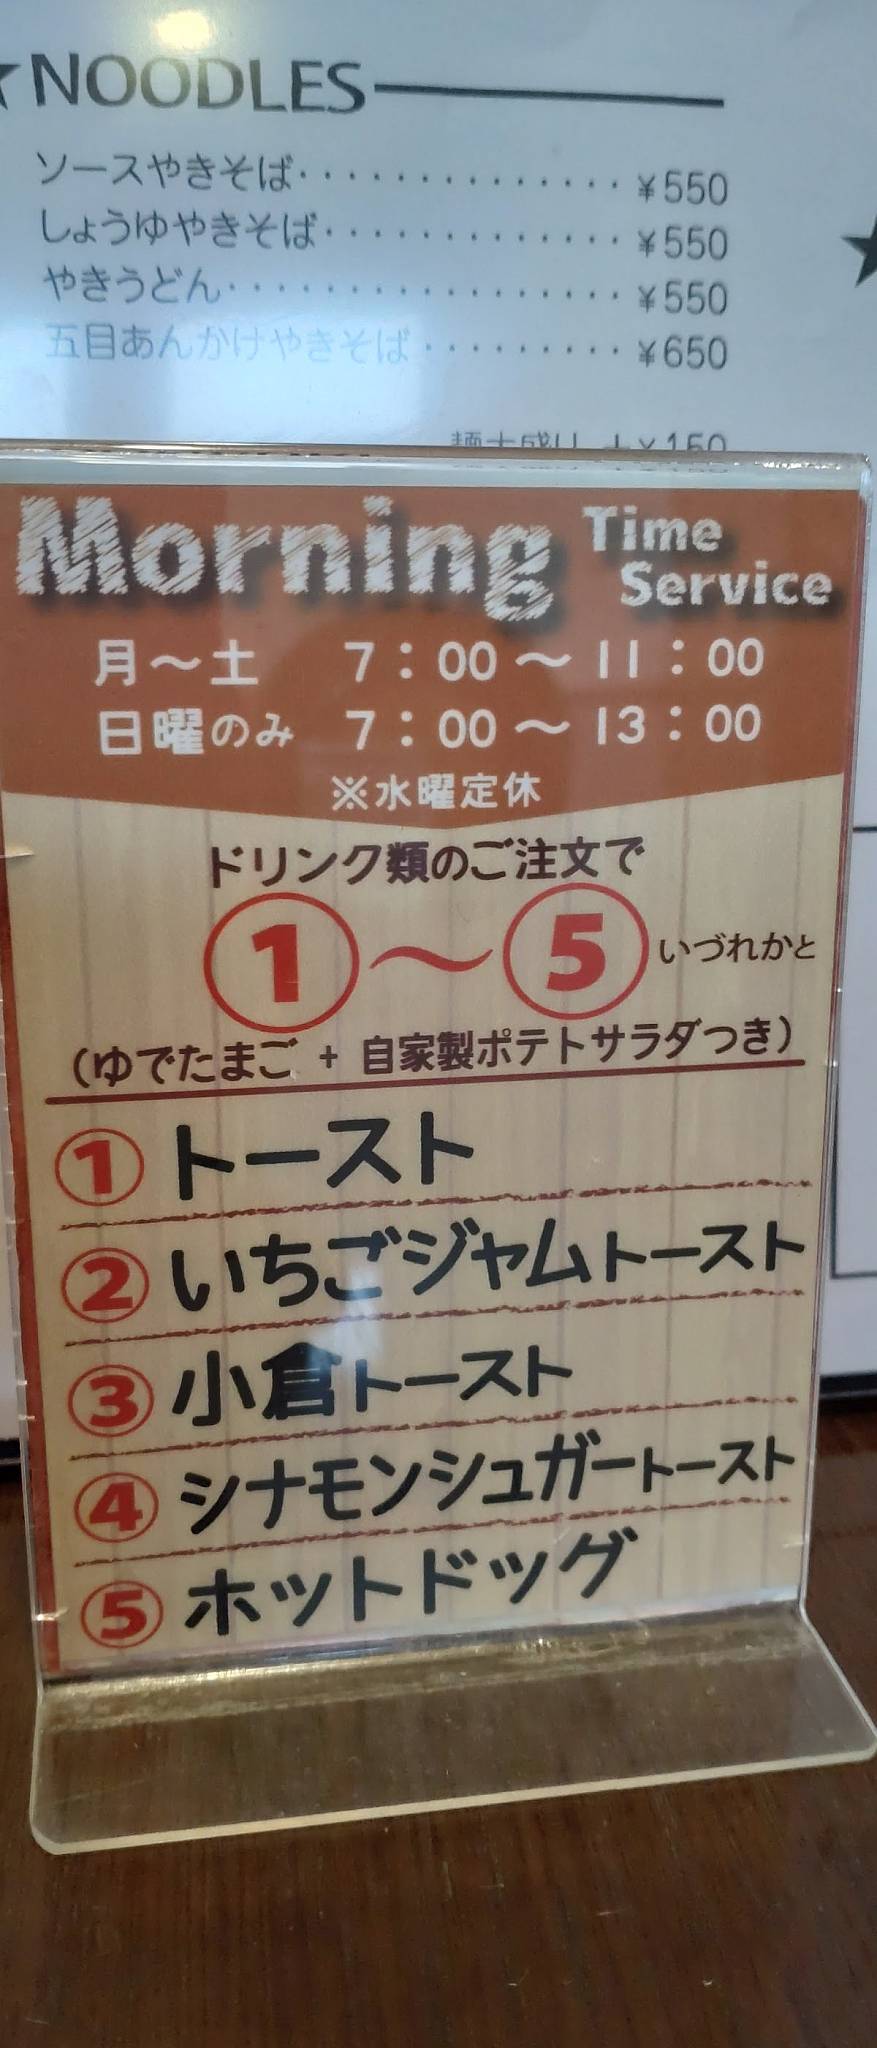 ★NOODLES
ソースやきそば･･････････････¥550
しょうゆやきそば･････････････¥550
やきうどん･････････････････¥550
五目あんかけやきそば･････････¥650
麺大盛り +¥150
Morning Time Service
月～土 7：00～11：00
日曜のみ 7：00～13：00
※水曜定休
ドリンク類のご注文で
①～⑤いづれかと
（ゆでたまご + 自家製ポテトサラダつき）
① トースト
② いちごジャムトースト
③ 小倉トースト
④ シナモンシュガートースト
⑤ ホットドッグ